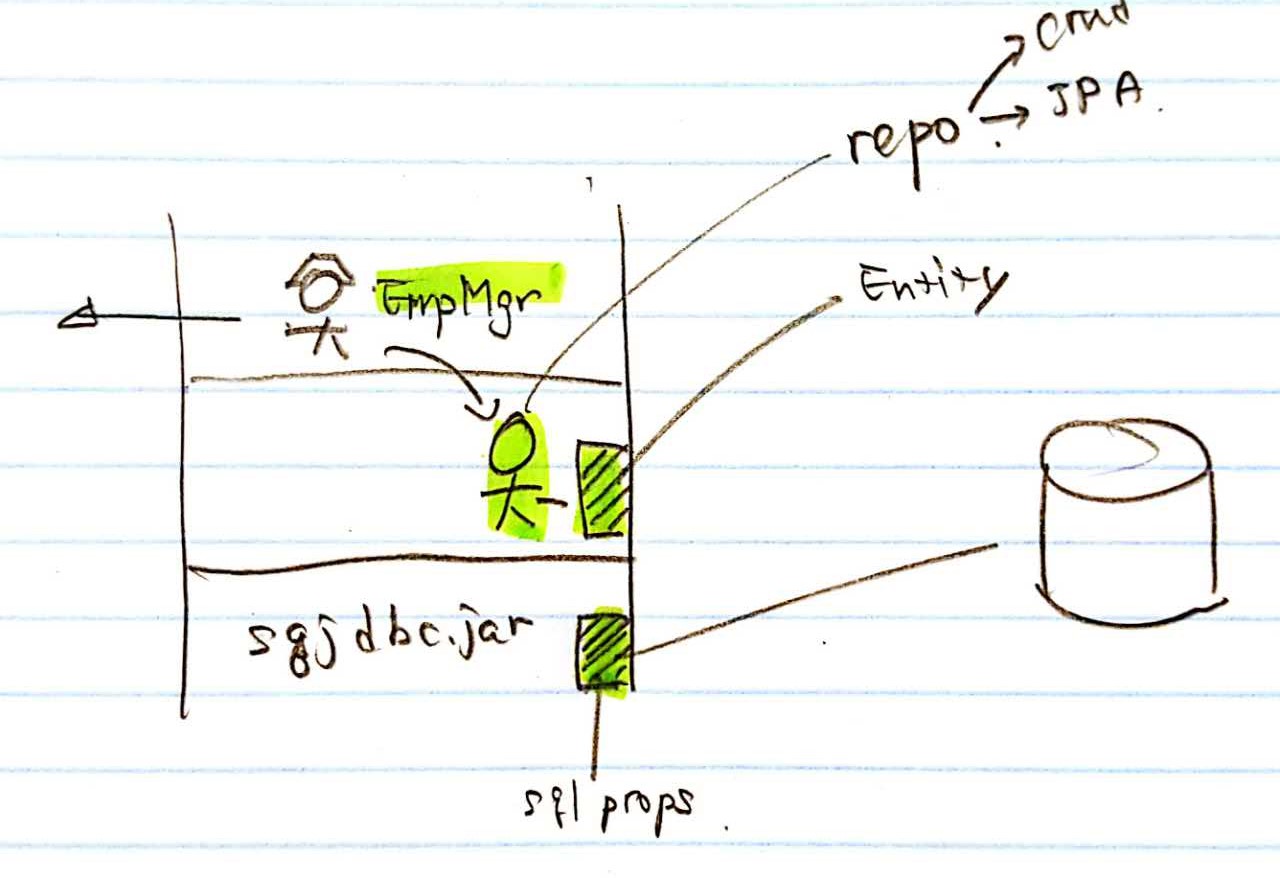 Crud
JPA.
repo
Entity
EmpMgr
sqjdbc.jar
sql props.